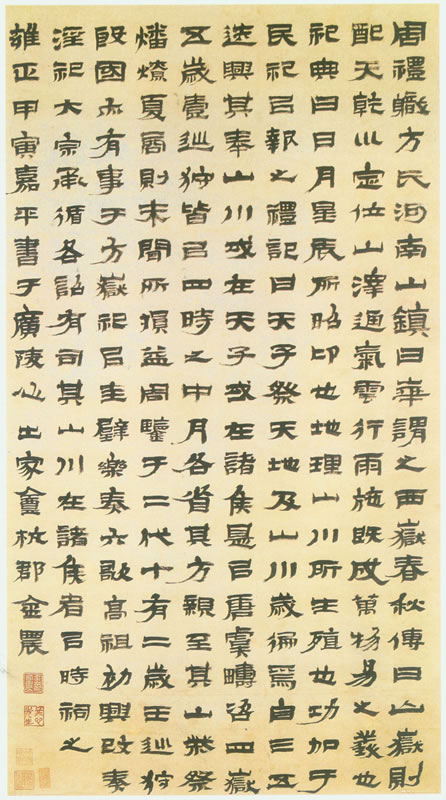 周禮職方氏河南山鎮曰華謂之西嶽春秋傳曰山嶽則
配天乾川定位山澤通氣雲行雨施既成萬物易之義也
祀典曰日月星辰所昭卬也地理山川所生殖也功加于
民祀㠯報之禮記曰天子祭天地及山川歲徧焉自三五
迭興其奉山川或在天子或在諸侯是㠯唐虞疇咨四嶽
五歲壹巡狩皆㠯四時之中月各省其方親至其山祡祭
燔燎夏商則未聞所損益周鑒于二代十有二歲王巡狩
殷國亦有事于方嶽祀㠯圭璧樂奏六歌高祖初興改秦
淫祀大宗承循各詔有司其山川在諸侯者㠯時祠之
雍正甲寅嘉平書于廣陵心出家盦杭郡金農